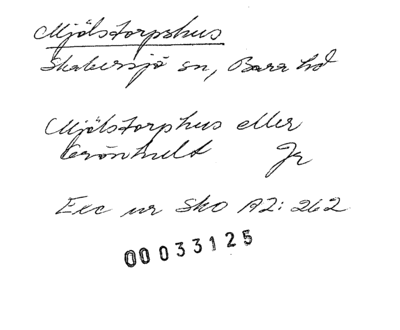 Mjölstorpshus
Skabersjö sn, Bara hd
Mjölstorphus eller
Grönhult Jr
Exc ur Sko A2: 262
00033125